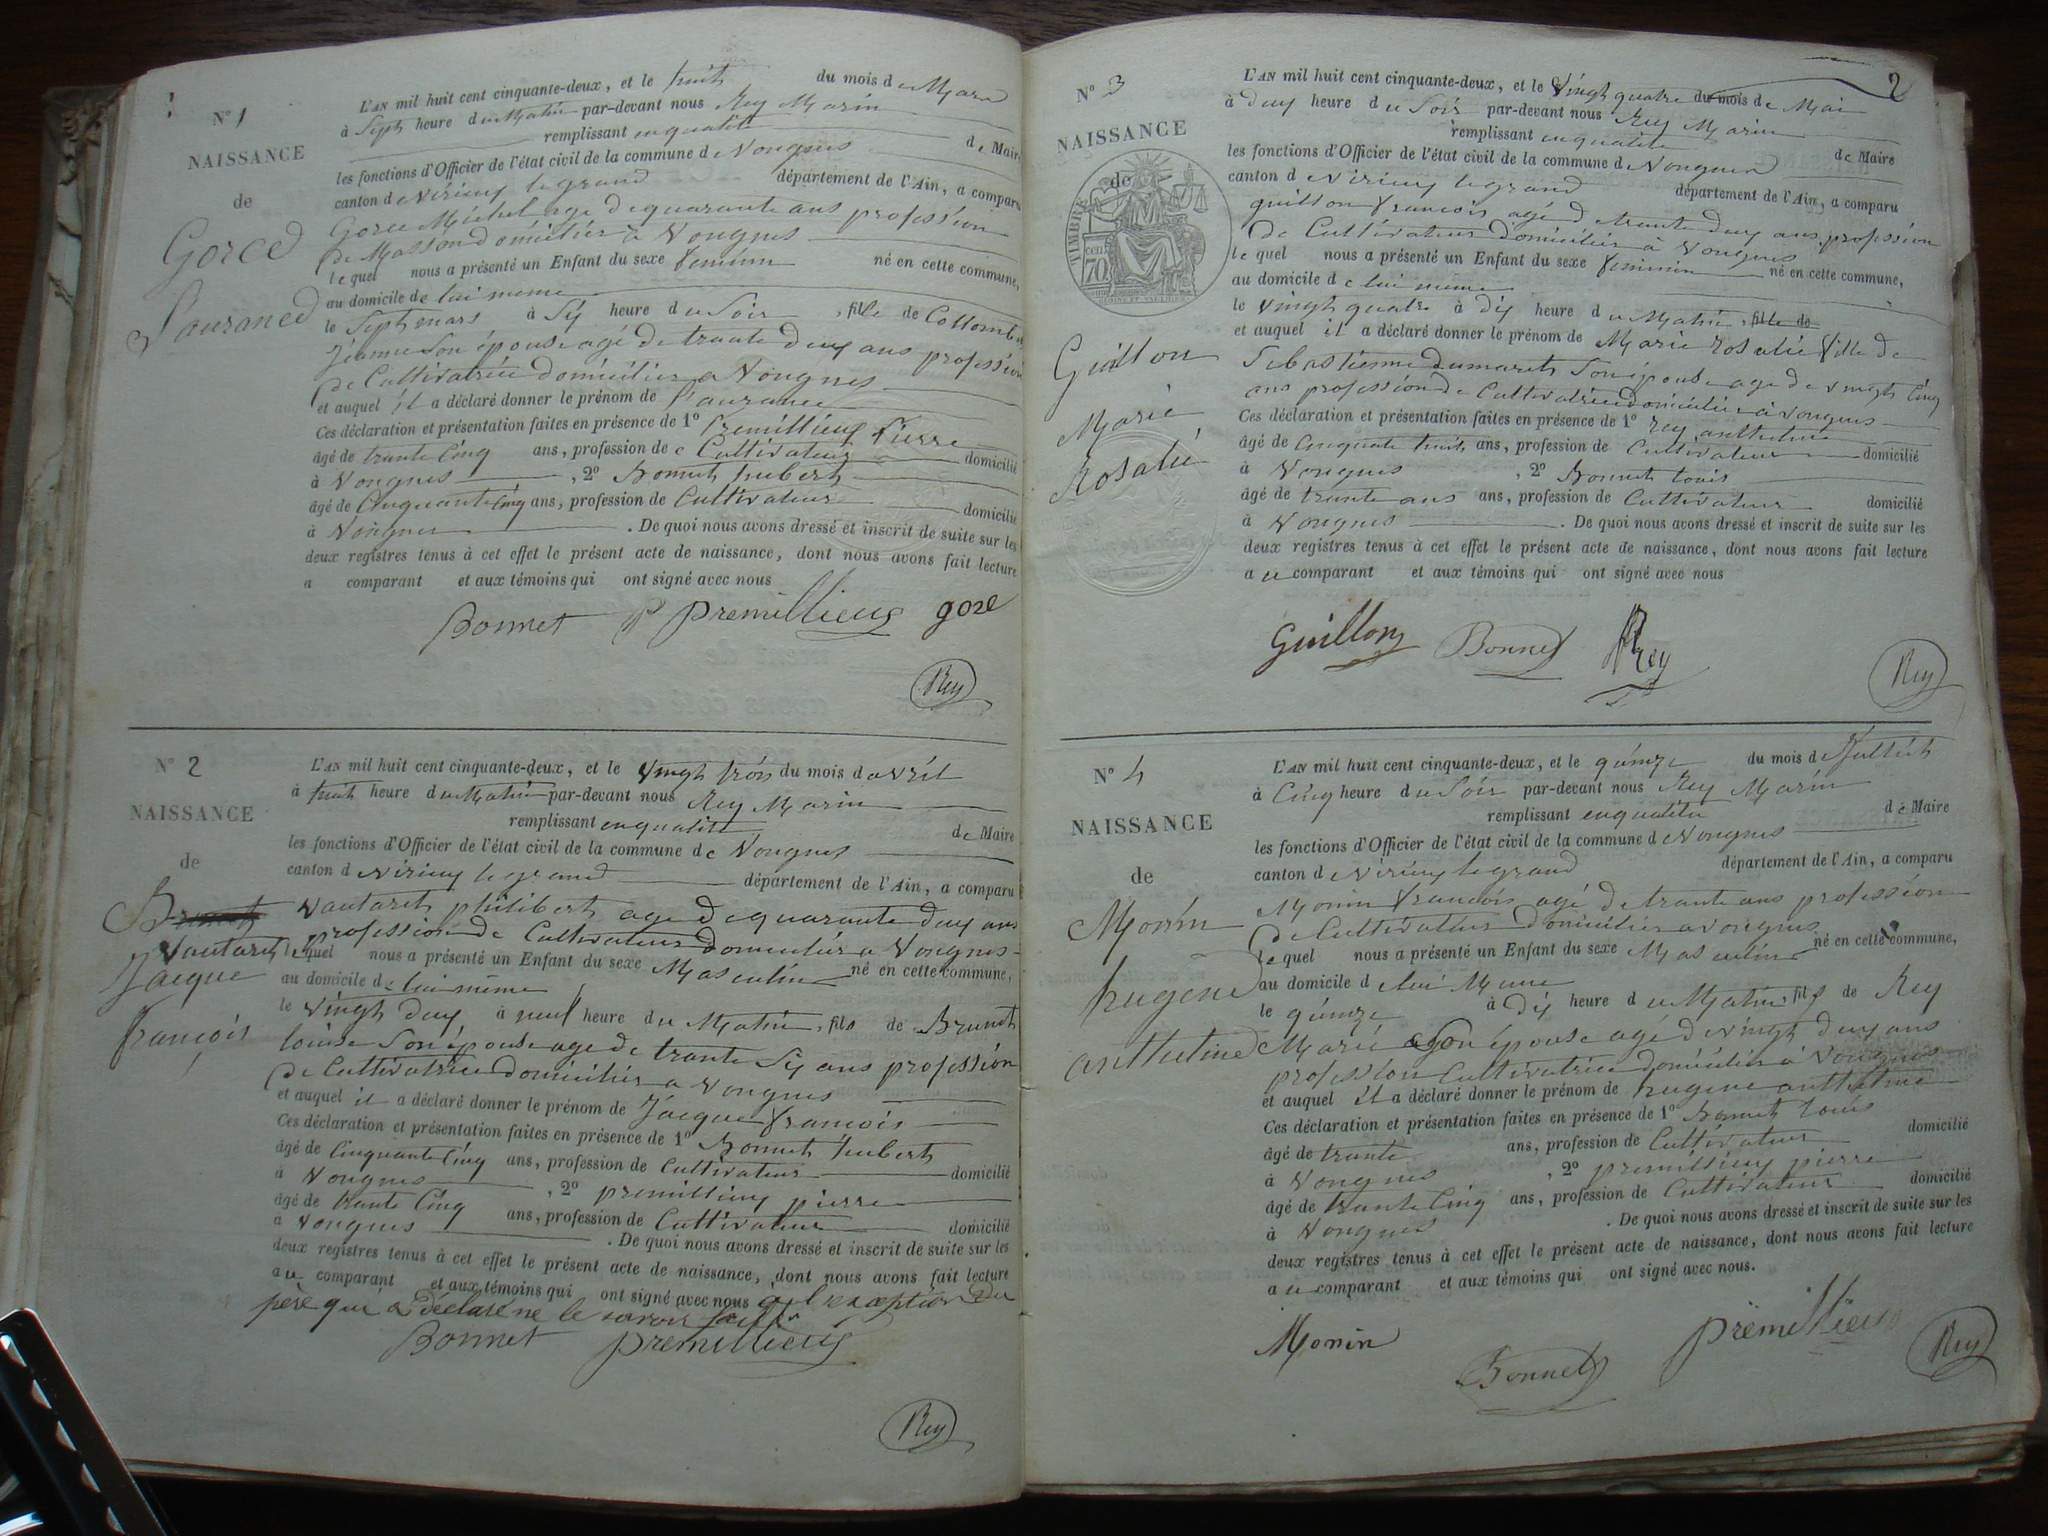 N° 1
NAISSANCE
de
Gorce
L'AN mil huit cent cinquante-deux, et le huit du mois de Mars
à Sept heure du Matin par-devant nous Rey Marin
remplissant en qualité de Maire
les fonctions d'Officier de l'état civil de la commune de Vongnes
canton de Virieu le grand département de l'Ain, a comparu
Gorce Michel agé de quarante ans profession
de Masson domicilié à Vongnes
le quel nous a présenté un Enfant du sexe feminin né en cette commune,
au domicile de lui meme
le Sept mars à Six heure du Soir , fille de Collomb
Jeanne Son épouse agé de trante deux ans profession
de Cultivatrice domicilié a Vongnes
et auquel il a déclaré donner le prénom de
Ces déclaration et présentation faites en présence de 1° Premillieux Pierre
âgé de trante Cinq ans, profession de Cultivateur domicilié
à Vongnes , 2° Bonnet hubert
âgé de Cinquante Cinq ans, profession de Cultivateur domicilié
à Vongnes . De quoi nous avons dressé et inscrit de suite sur les
deux registres tenus à cet effet le présent acte de naissance, dont nous avons fait lecture
a comparant et aux témoins qui ont signé avec nous
Bonnet P premillieux
Rey
N° 2
NAISSANCE
de
Brunet
Vautaret
Jacque
françois
L'AN mil huit cent cinquante-deux, et le vingt trois du mois d avril
à huit heure du Matin par-devant nous Rey Marin
remplissant en qualité de Maire
les fonctions d'Officier de l'état civil de la commune de Vongnes
canton de Virieu le grand département de l'Ain, a comparu
Vautaret philibert agé de quarante deux ans
profession de Cultivateur domicilié a Vongnes
lequel nous a présenté un Enfant du sexe Masculin né en cette commune,
au domicile de lui même
le vingt deux à neuf heure du Matin , fils de Brunet
louise Son épouse agé de trante Six ans profession
de Cultivatrice domicilié a Vongnes
et auquel il a déclaré donner le prénom de Jacque françois
Ces déclaration et présentation faites en présence de 1° Bonnet hubert
âgé de Cinquante Cinq ans, profession de Cultivateur domicilié
à Vongnes , 2° premillieux pierre
âgé de trante Cinq ans, profession de Cultivateur domicilié
a Vongnes . De quoi nous avons dressé et inscrit de suite sur les
deux registres tenus à cet effet le présent acte de naissance, dont nous avons fait lecture
au comparant et aux témoins qui ont signé avec nous a l'exception du
père qui a déclaré ne le savoir
Bonnet premillieux
Rey
2
N° 3
NAISSANCE
de
TIMBRE
cen 70
Guillon
Marie
Rosalie
L'AN mil huit cent cinquante-deux, et le vingt quatre du mois de Mai
à deux heure du Soir par-devant nous Rey Marin
remplissant en qualité de Maire
les fonctions d'Officier de l'état civil de la commune de Vongnes
canton de Virieu le grand département de l'Ain, a comparu
guillon francois agé de trante deux ans profession
de Cultivateur domicilié à Vongnes
le quel nous a présenté un Enfant du sexe feminin né en cette commune,
au domicile de lui meme
le vingt quatre à dix heure du Matin , fille de
et auquel il a déclaré donner le prénom de Marie rosalie fille de
Sebastienne dumarest Son épouse agé de vingt Cinq
ans profession de Cultivatrice domicilié à Vongnes
Ces déclaration et présentation faites en présence de 1° rey anthelme
âgé de Cinquante huit ans, profession de Cultivateur domicilié
à Vongnes , 2° Bonnet louis
âgé de trante ans ans, profession de Cultivateur domicilié
à Vongnes . De quoi nous avons dressé et inscrit de suite sur les
deux registres tenus à cet effet le présent acte de naissance, dont nous avons fait lecture
a u comparant et aux témoins qui ont signé avec nous
Guillon Bonnet Rey
Rey
N° 4
NAISSANCE
de
Monin
hugene
anthelme
L'AN mil huit cent cinquante-deux, et le quinze du mois de Juillet
à Cinq heure du Soir par-devant nous Rey Marin
remplissant en qualité de Maire
les fonctions d'Officier de l'état civil de la commune de Vongnes
canton de Virieu le grand département de l'Ain, a comparu
Monin francois agé de trante ans profession
de Cultivateur domicilié a Vongnes
le quel nous a présenté un Enfant du sexe Masculin né en cette commune,
au domicile de lui Meme
le quinze à dix heure du Matin , fils de Rey
Marie Son épouse agé de vingt deux ans
profession Cultivatrice domicilié à Vongnes
et auquel il a déclaré donner le prénom de hugene anthelme
Ces déclaration et présentation faites en présence de 1° Bonnet louis
âgé de trante ans, profession de Cultivateur domicilié
à Vongnes , 2° premillieux pierre
âgé de trante Cinq ans, profession de Cultivateur domicilié
à Vongnes . De quoi nous avons dressé et inscrit de suite sur les
deux registres tenus à cet effet le présent acte de naissance, dont nous avons fait lecture
a u comparant et aux témoins qui ont signé avec nous.
Monin Bonnet premillieux
Rey